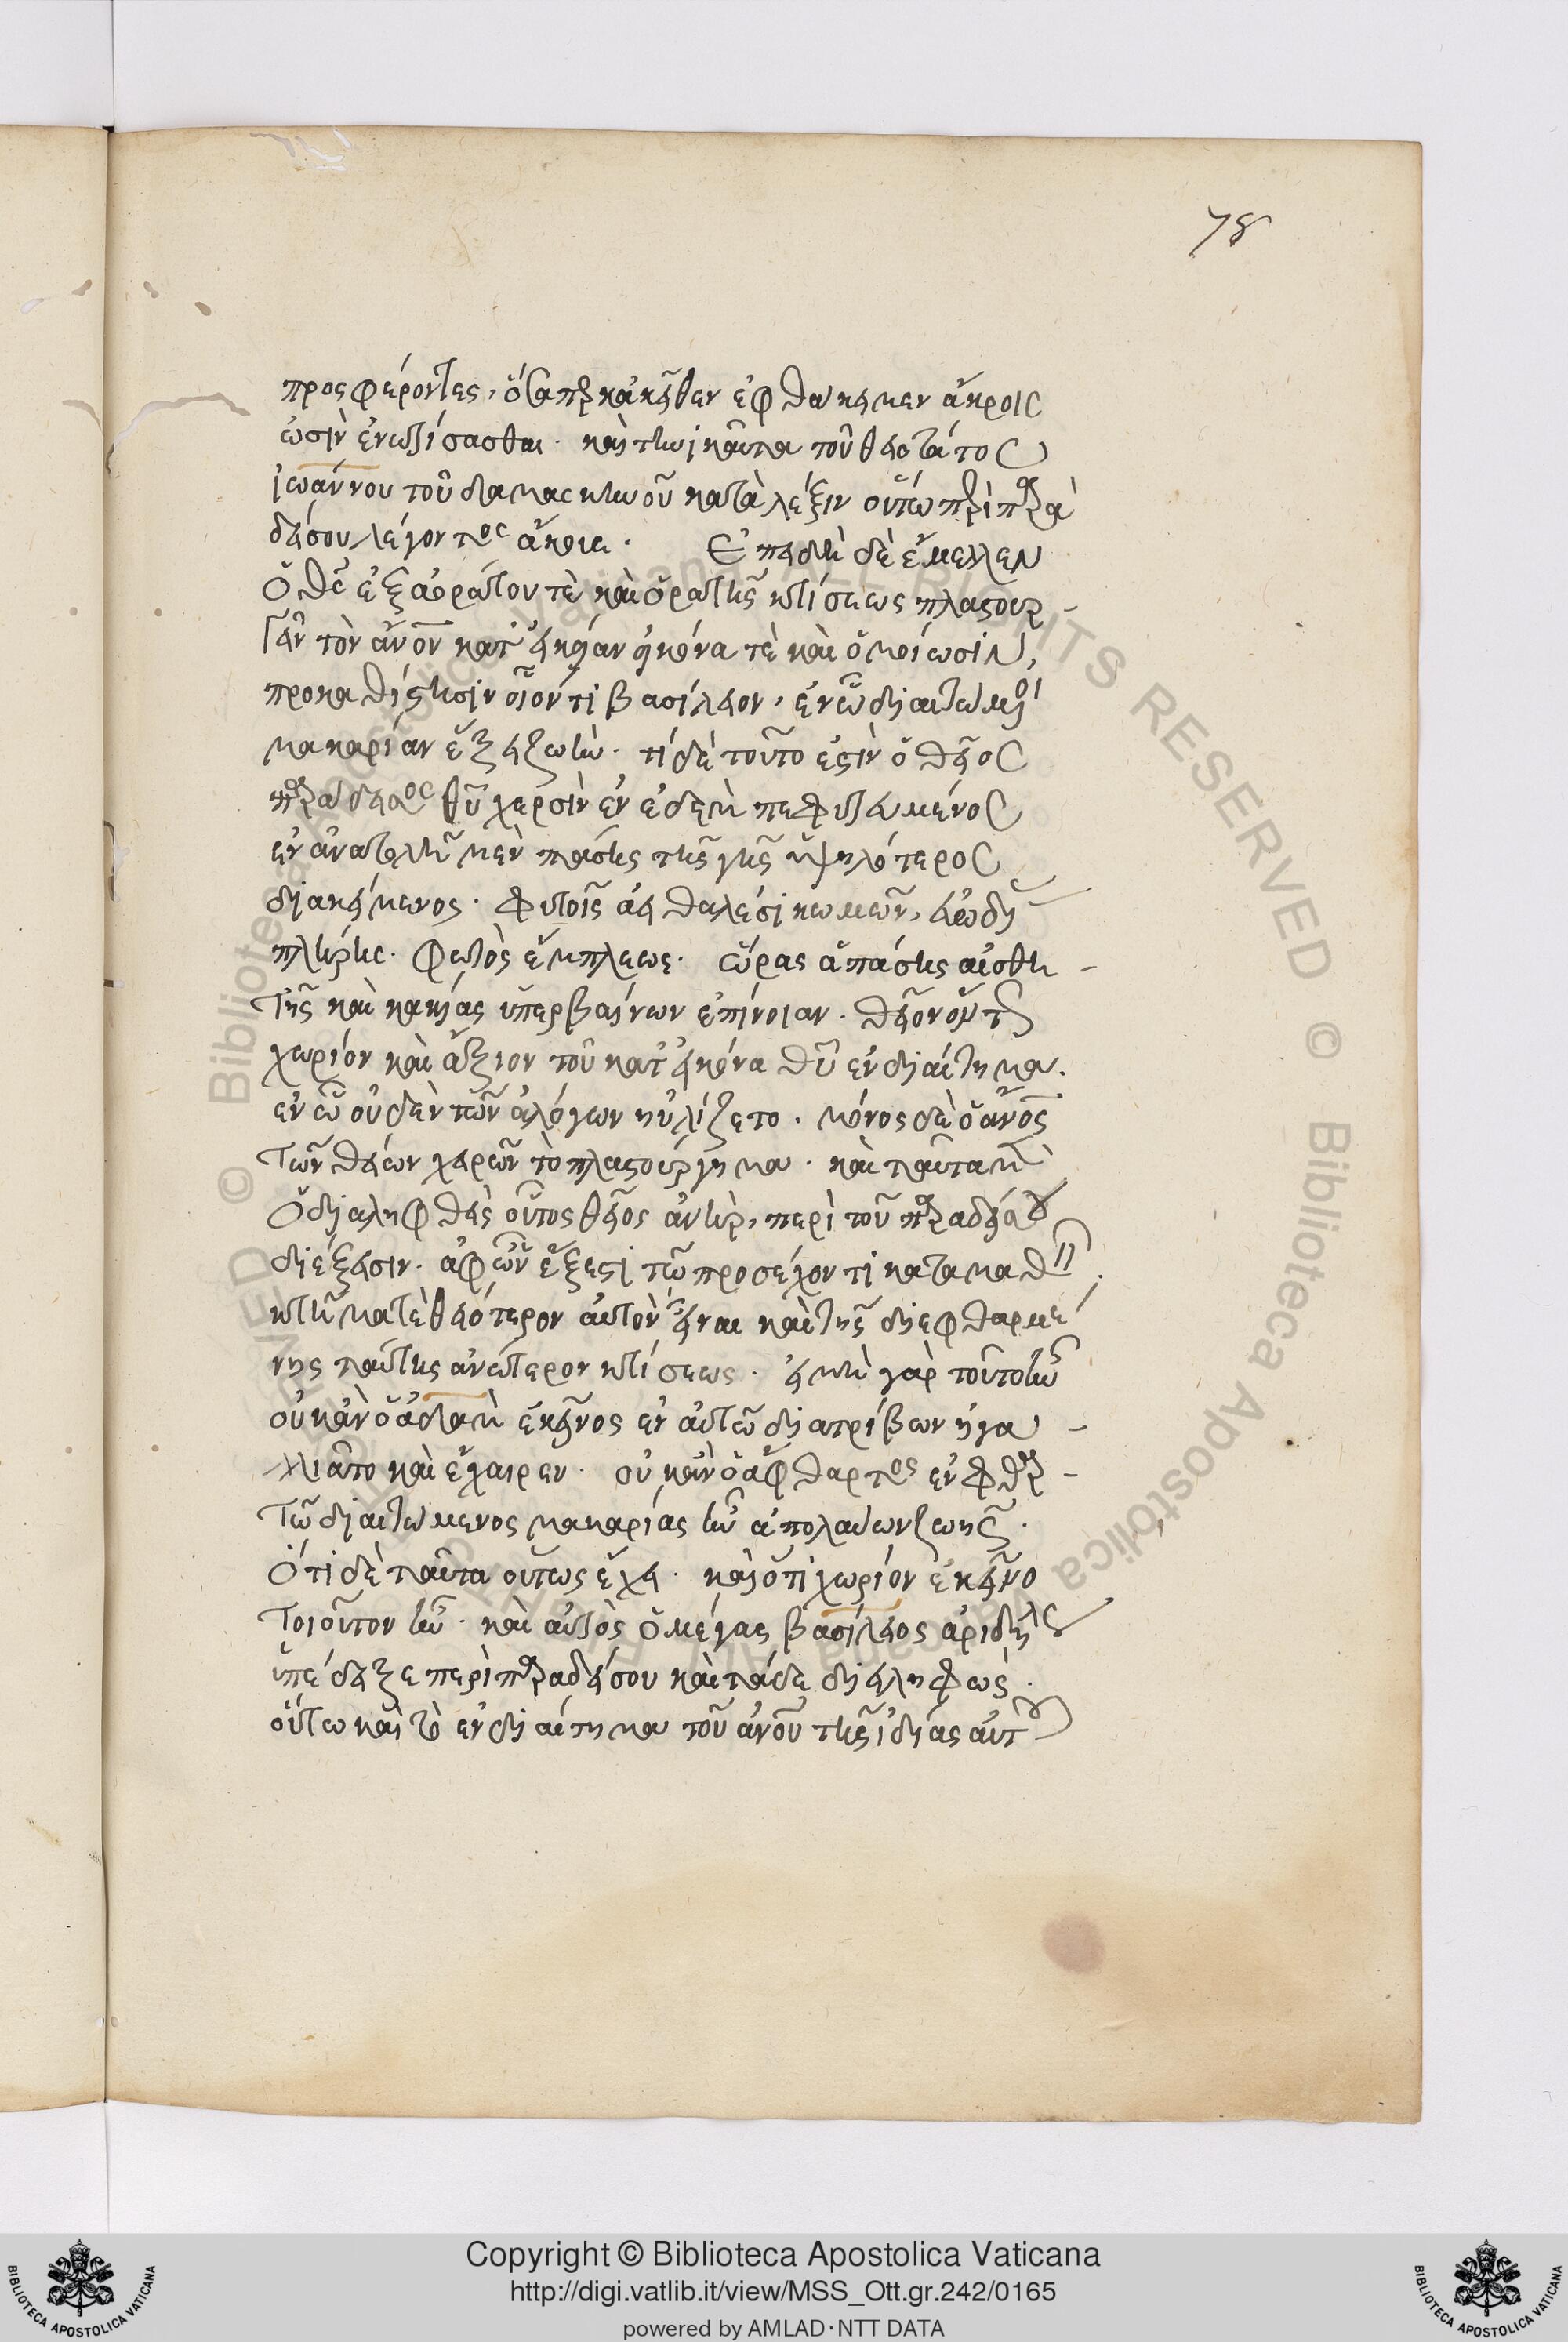 78
προςφέροντες, ὅσα παρ κἀκεῖθεν ἐφθάκειμεν ἄκροις
ὠσὶν ἐνωτίσασθαι. καὶ τηνικαῦτα τοῦ θειοτάτος
ἰωάννου τοῦ δαμασκηνοῦ κατὰ λέξιν οὕτω περὶ παρα
δείσου λέγοντος ἄκουε. Ἐπειδὴ δὲ ἔμελλεν
ὁ θς ἐξ ἀοράτου τὲ καὶ ὁρατῆς κτίσεως πλαστουρ-
γεῖν τὸν ἄνον κατ' οἰκείαν εἰκόνα τὲ καὶ ὁμοίωσιν,
προκαθίστησιν οἷόν τι βασίλειον, ἐν ὧ διαιτώμενοι
μακαρίαν ἕξει ζωὴν. τί δὲ τοῦτο ἐστὶν ὁ θεῖος
παράδεισος θῦ χερσὶν ἐν ἐδεμ πεφυτευμένος
ἐν ἀνατολῆ μὲν πάσης τῆς γῆς ὑψηλότερος
διακείμενος. φυτοῖς ἀειθαλέσι κωμῶν, εὐωδίας
πλήρης. φωτὸς ἔμπλεως. ὥρας ἁπάσης αἰσθη-
τῆς καὶ κακίας ὑπερβαίνων ἐπίνοιαν. θεῖον ὄντως
χωρίον καὶ ἄξιον τοῦ κατ' εἰκόνα θῦ ἐνδιαίτημα.
ἐν ὧ οὐδὲν τῶν ἀλόγων ηὐλίζετο. μόνος δὲ ὁ ἄνος
τῶν θείων χειρῶν τὸ πλαστούργημα. καὶ ταῦτα μὲν
ὁ διαληφθεὶς οὗτος θεῖος ἀνὴρ, περὶ τοῦ παραδείσου
διέξεισιν. ἀφ' ὧν ἔξεστι τῶ προσέχοντι καταμαθεῖν.
κτῆμα τὲ θειότερον αὐτὸν εἶναι καὶ τῆς διεφθαρμέ
νης ταύτης ἀνώτερον κτίσεως. εἰ μὴ γὰρ τοῦτο ἦν
οὐκ ἂν ὁ ἀδαμ ἐκεῖνος ἐν αὐτῶ διατρίβων ἠγα-
λλιᾶτο καὶ ἔχαιρεν. οὐκ ἂν ὁ ἄφθαρτος ἐν φθαρ-
τῶ διαιτώμενος μακαρίας ἦν ἀπολαύων ζωῆς.
Ὅτι δὲ ταῦτα οὕτως ἔχει. καὶ ὅτι χωρίον ἐκεῖνο
τοιοῦτον ἦν. καὶ αὐτὸς ὁ μέγας βασίλειος ἀριδήλως
ὑπέδειξε περὶ παραδείσου καὶ τάδε διειληφὼς.
οὕτω καὶ τὸ ἐνδιαίτημα τοῦ ἀνου τῆς ἰδίας αὐτοῦ
© Biblioteca Apostolica Vaticana ALL RIGHTS RESERVED © Biblioteca Apostolica Vaticana
BIBLIOTECA APOSTOLICA VATICANA
Copyright © Biblioteca Apostolica Vaticana
http://digi.vatlib.it/view/MSS_Ott.gr.242/0165
powered by AMLAD·NTT DATA
BIBLIOTECA APOSTOLICA VATICANA